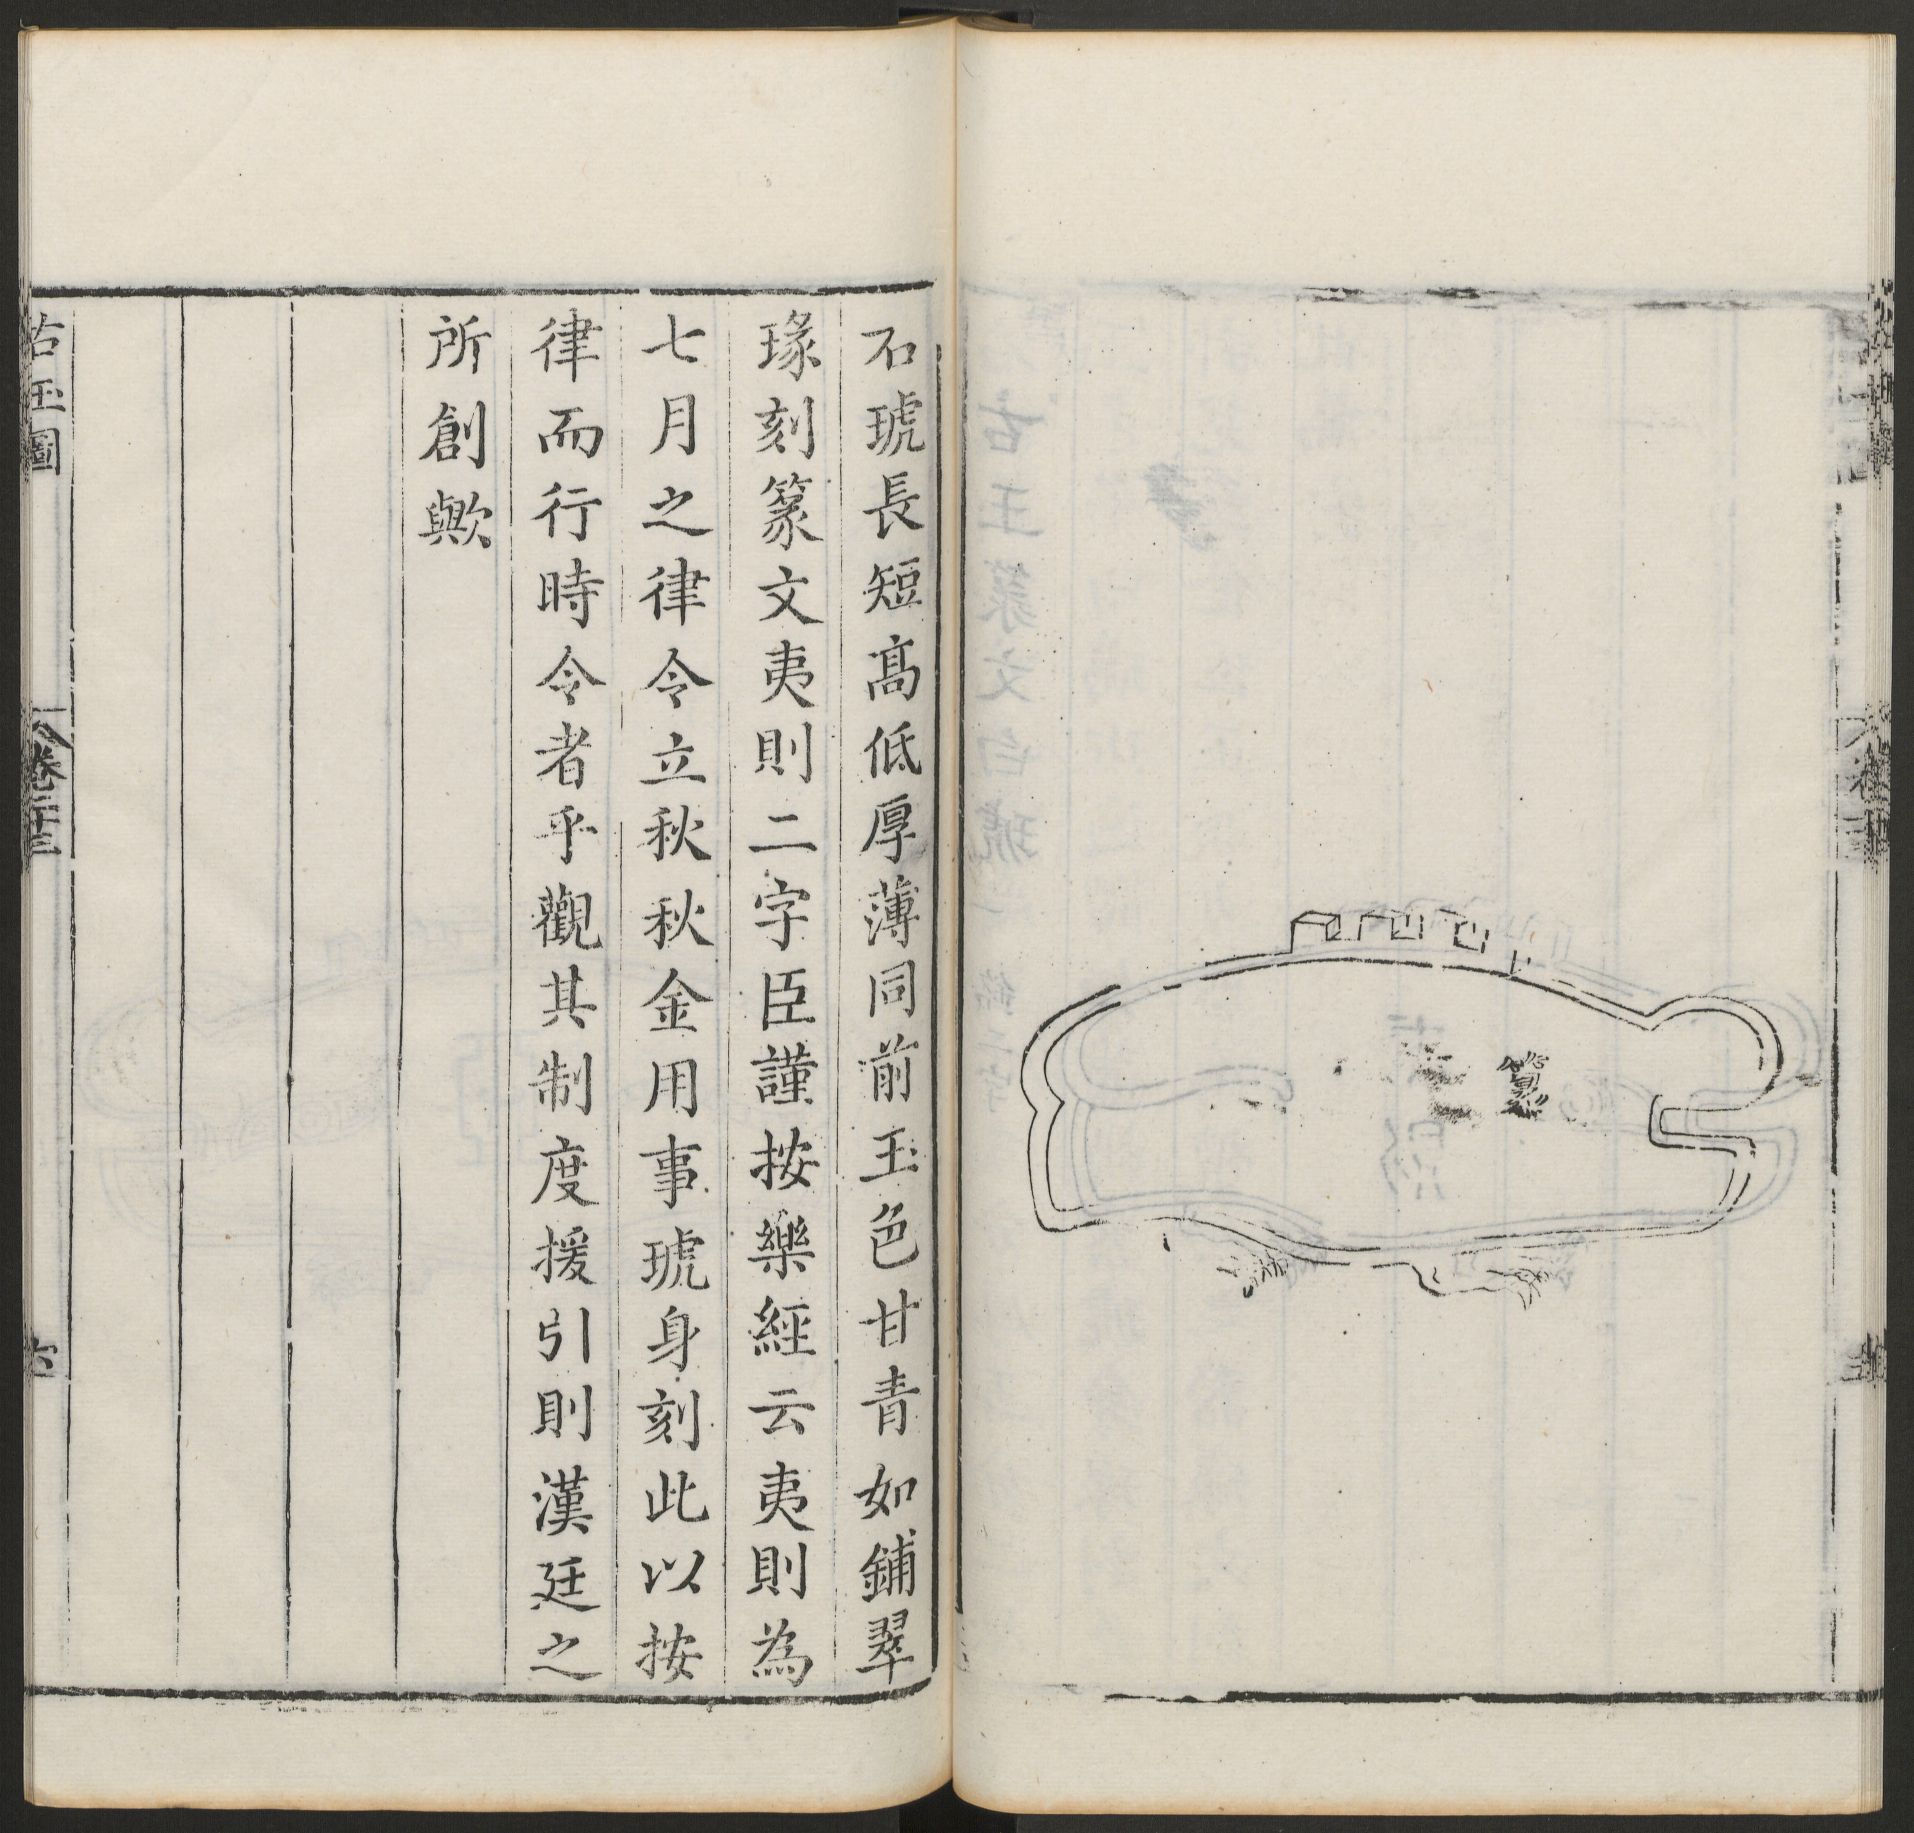 右琥長短高低厚薄同前玉色甘青如鋪翠
瑑刻篆文夷則二字臣謹按樂經云夷則為
七月之律令立秋秋金用事琥身刻此以按
律而行時令者乎觀其制度援引則漢廷之
所創歟
古玉圖
卷二十三
六